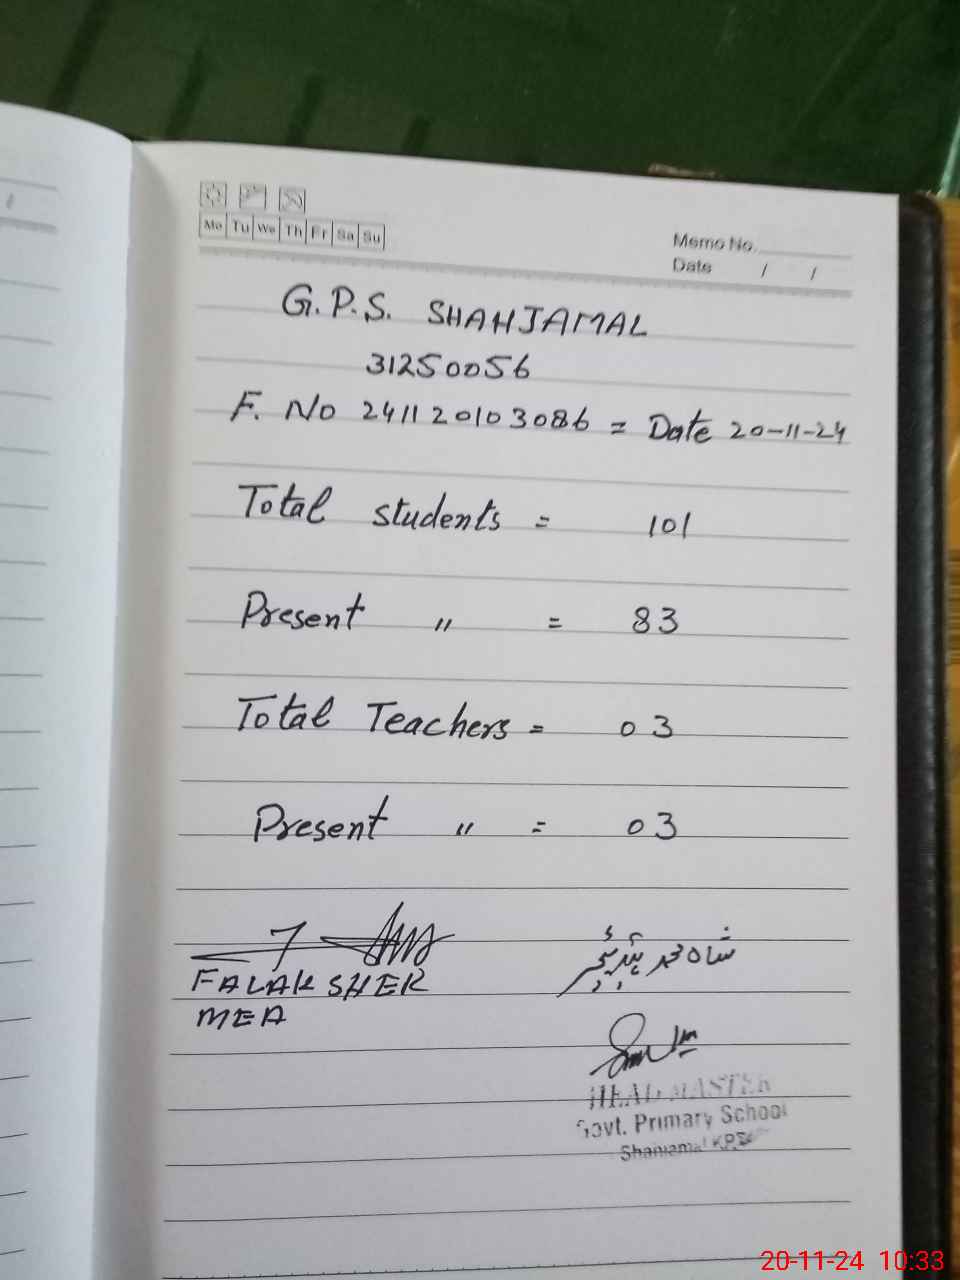 Mo Tu We Th Fr Sa Su
Memo No.
Date / /
G.P.S. SHAHJAMAL
31250056
F. No 241120103086 = Date 20-11-24
Total students = 101
Present " = 83
Total Teachers = 03
Present " = 03
FALAK SHER
MEA
شاہ محمد ہیڈ ٹیچر
HEAD MASTER
Govt. Primary School
Shahjamal
20-11-24 10:33